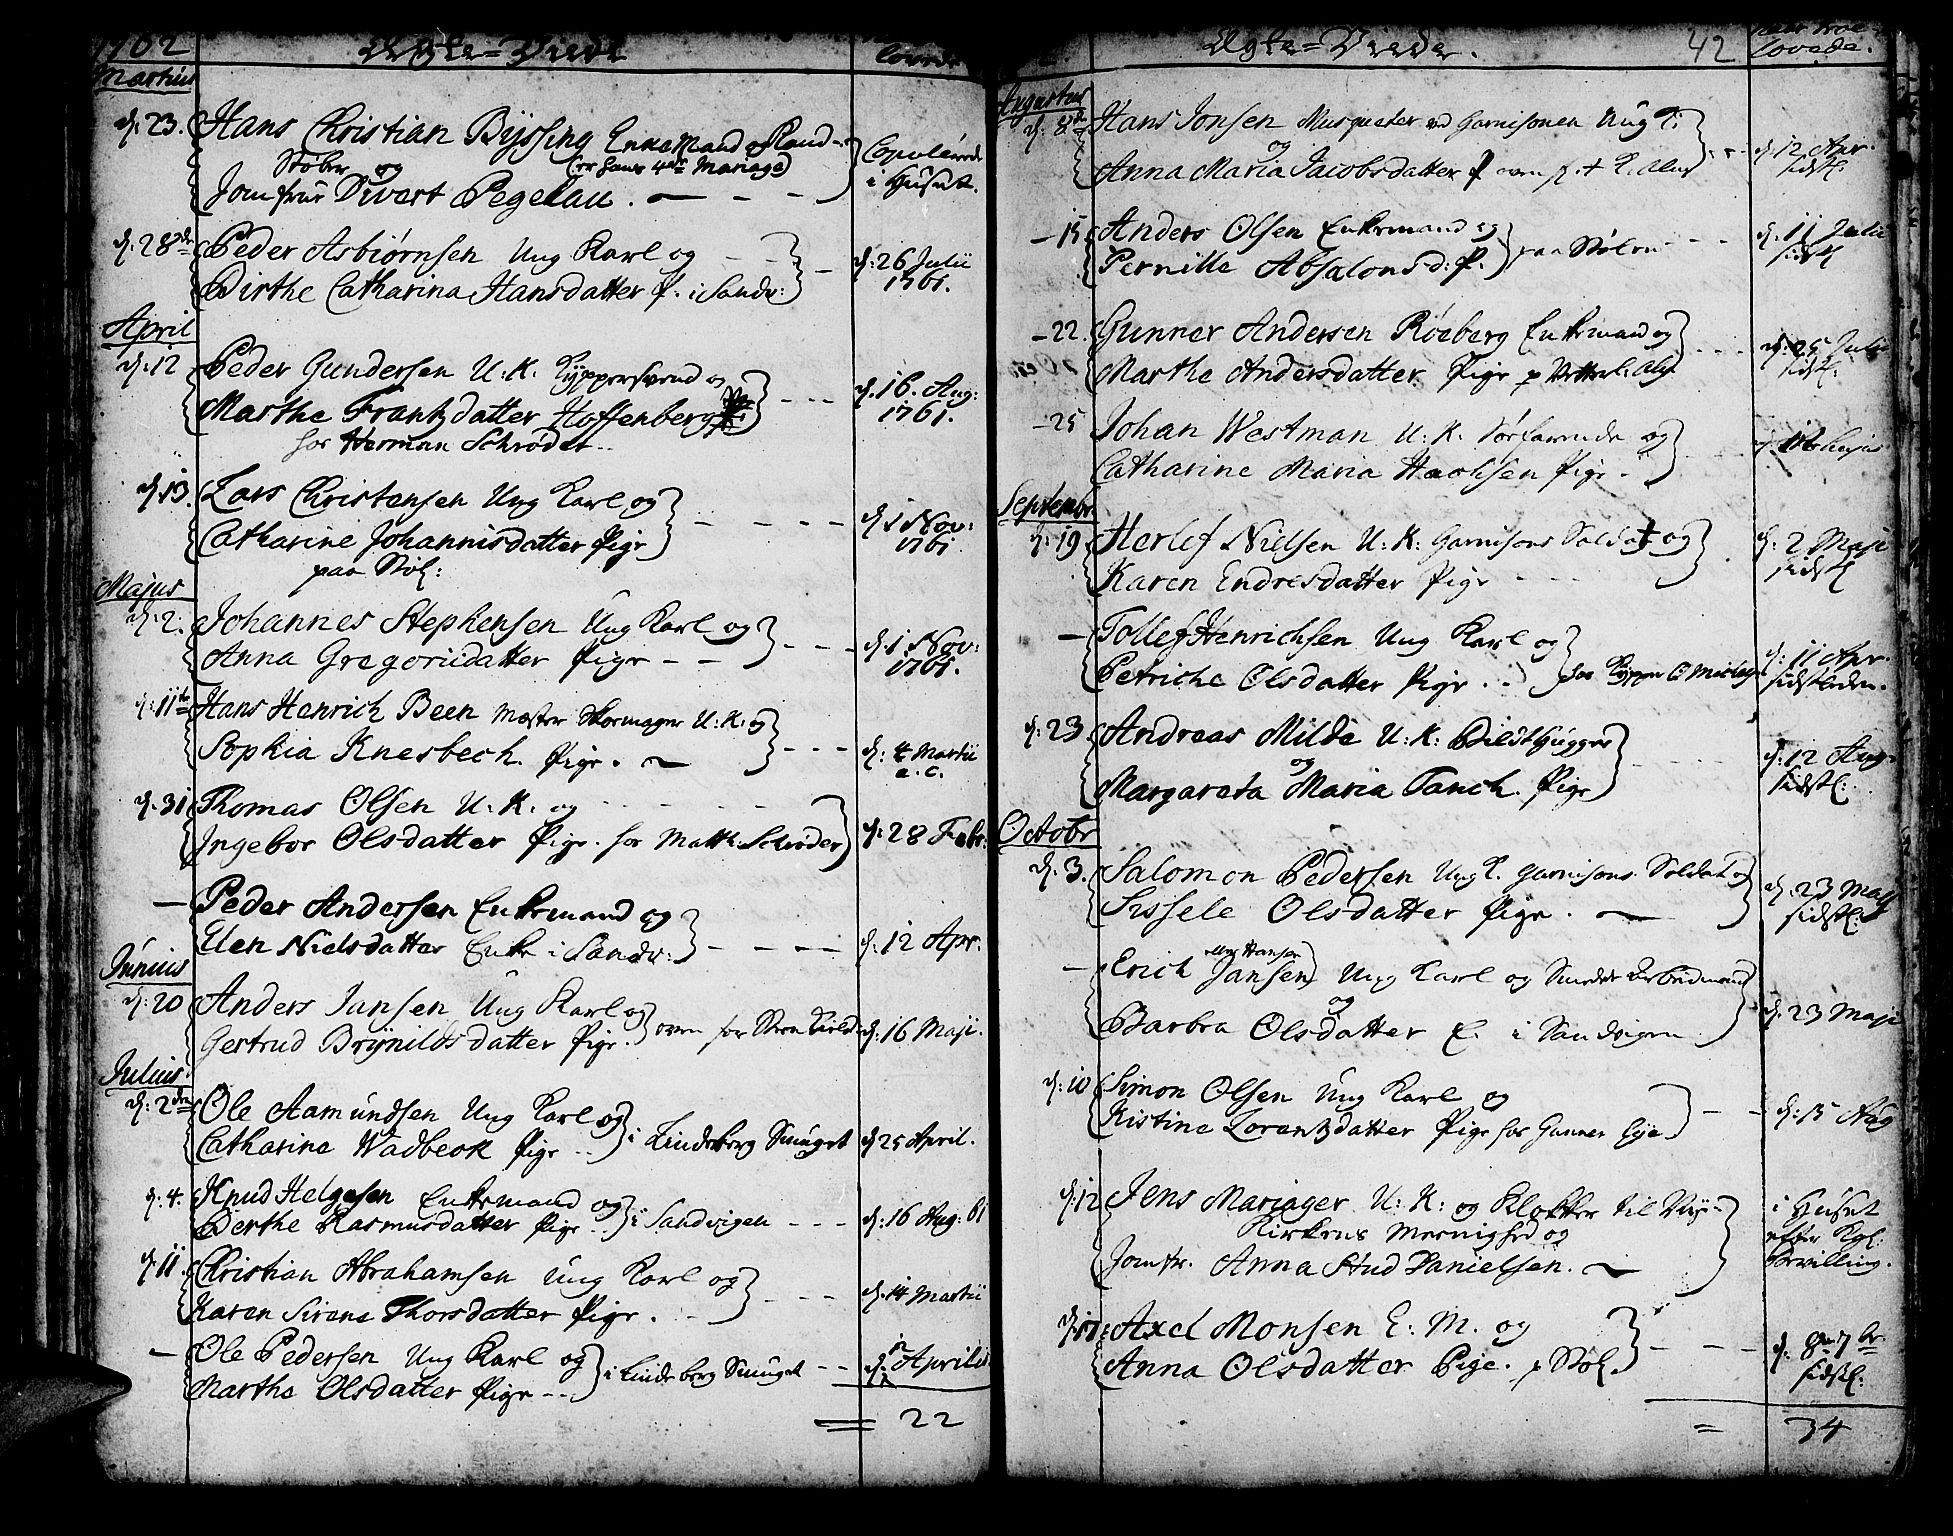 1762
Ægte=Viede
lovede
Martius
d. 23. Hans Christian Byssing Enkemand og Kand=
Støber og (er hans 4de Mariage)
Copulerede
i Huset.
Jomfrue Divert Pegelau.
d. 28de Peder Asbiørnsen Ung Karl og
d. 26 Julii
1761.
Dirthe Catharina Hansdatter P. i Sandv:
April
d. 12 Peder Gundersen U. K. Kyppersvend og
d. 16. Aug:
1761.
Marthe Frantzdatter Hoffenberg
hos Herman Schrøder.
d. 13. Lars Christensen Ung Karl og
d. 1 Nov:
1761.
Catharine Johannisdatter Pige
paa Støl:
Majus
d. 2. Johannes Stephensen Ung Karl og
d. 1 Nov:
1761.
Anna Gregoriidatter Pige
d. 11te Hans Henrich Been Mæster Skomager U. K. og
d. 4 Martii
a. c.
Sophia Knesbech. Pige.
d. 31 Thomas Olsen U. K. og
Ingebor Olsdatter Pige. hos Matth: Schrøder
d. 28 Febr:
— Peder Andersen Enkemand og
Elen Nielsdatter Enke i Sandv:
d. 12 Apr.
Junius
d. 20 Anders Jansen Ung Karl og
Gertrud Brynildsdatter Pige.
d. 16 Maji.
Julius.
d. 2den Ole Aamundsen Ung Karl og
Catharina Wadbeok Pige
i Lindeberg Smuget d. 25 April.
d. 4. Knud Helgesen Enkemand og
Berthe Rasmusdatter Pige
i Sandvigen d. 16 Aug: 61
d. 11. Christian Abrahamsen Ung Karl og
d. 14 Martii
Karen Sirene Thorsdatter Pige.
— Ole Pedersen Ung Karl og
Marthe Olsdatter Pige
i Lindeberg Smuget Aprilis
= 22
Ægte=Viede.
42
lovede.
Augustus
d. 8de Hans Jonsen Musqueter ved Garnisonen Ung K.
og
d. 12 Apr.
sidstl.
Anna Maria Jacobsdatter P
— 15 Anders Olsen Enkemand og
Pernille Absalonsd: P.
paa Støl
d. 11 Julii
sidstl
— 22. Gunner Andersen Røeberg Enkemand og
d. 25 Julii
sidstl.
Marthe Andersdatter. Pige
— 25 Johan Westman U. K. Søefarende og
Catharine Maria Haohsen Pige
Septembr
d. 19 Herlef Nielsen U: K: Garnisons Soldat og
d. 2 Maji
sidstl
Karen Endresdatter Pige
— Tollef Henrichsen Ung Karl og
Petriche Olsdatter Pige
d. 11 Apr.
sidstleden.
d. 23. Andreas Milde U. K: Bildthugger
og
d. 12 Aug.
sidstl:
Margareta Maria Fanch. Pige
Octobr
d. 3. Salomon Pedersen Ung K. Garnisons Soldat og
d. 23 Maji
sidstl:
Sissele Olsdatter Pige.
— Erich Jansen eller Hansen Ung Karl og Smeder Arbeidsmand
og
Barbra Olsdatter E. i Sandvigen
d. 23 Maji
d. 10 Simon Olsen Ung Karl og
d. 15 Aug
Kistine Lorentzdatter Pige hos Gunner Eye
d. 12 Jens Mariager U. K: og Klokker til Nye=
Kirkens Menighed og
i Huset
efter Kgl:
Bevilling.
Jomfr. Anna Stud Danielsen.
d. 17. Axel Monsen E: M. og
Anna Olsdatter Pige. p Støl.
d. 8de 7br
sidstl.
= 34